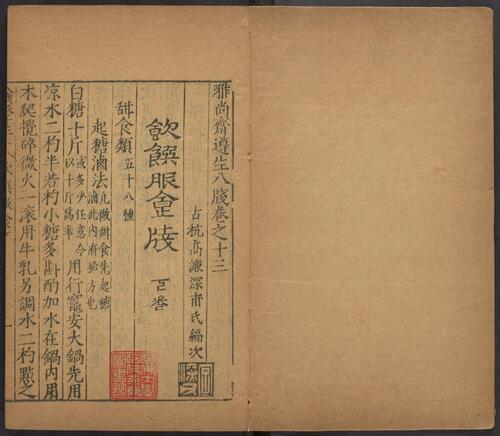 雅尚齋遵生八牋卷之十三
古杭高濂深甫氏編次
飲饌服食牋 下卷
甜食類 五十八種
起糖滷法 凡做甜食先起糖滷此内府秘方也
白糖十斤或多少任意今以十斤爲率用行竈安大鍋先用
凉水二杓半若杓小糖多斟酌加水在鍋内用
木爬攪碎微火一滚用牛乳另調水二杓點之